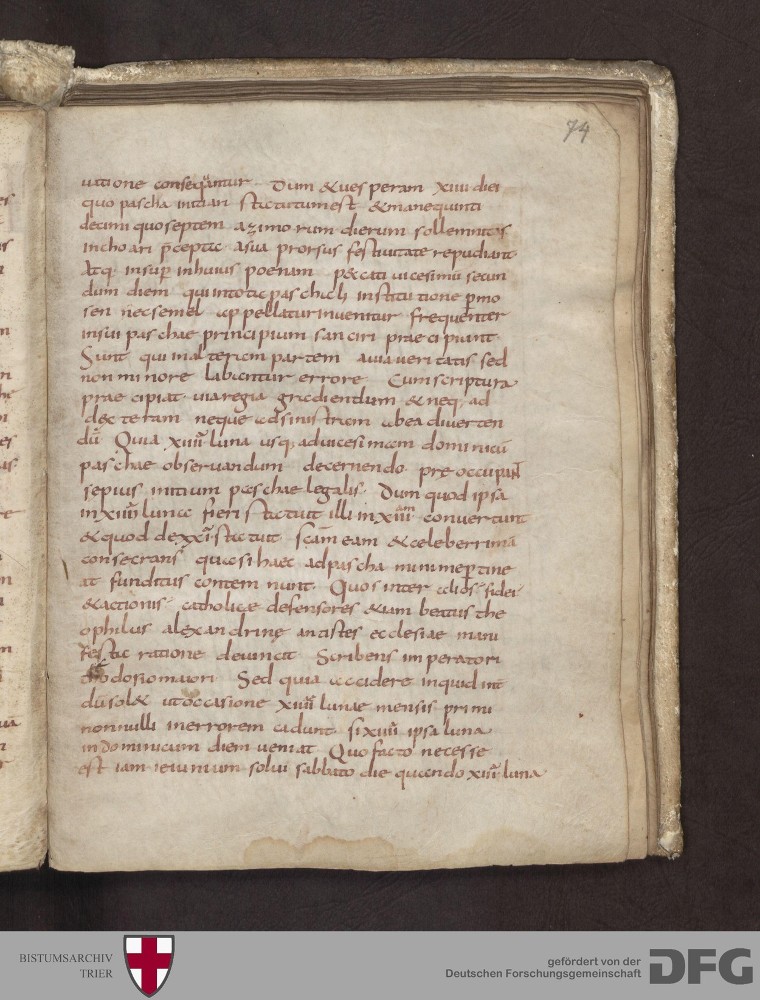 74
uatione consequantur. Dum & uesperam xiiii diei
quo pascha initiari statutum est & mane quinti
decimi quo septem azimorum dierum sollemnitas
inchoari p̄cepta. a sua prorsus festiuitate repudiant.
Atq. insup̄ in huius poenam peccati uicesimū secun
dum diem qui in tota paschali institutione p̄mo
sen nec semel appellatur inuenitur frequenter
in sui paschae principium sanciri praecipiunt.
Sunt qui in alteram partem a uia ueritatis sed
non minore labantur errore. Cum scriptura
praecipiat. uia regia gradiendum & neq; ad
dexteram neque ad sinistram ab ea diuerten
dū. Quia xiiii luna usq. ad uicesimam dominicū
paschae obseruandum decernendo. preoccupan̄
sepius initium paschae legalis. Dum quod ipsa
in xiiii luna fieri statuit illi in xiii am conuertunt
& quod de xxi statuit scām eam & celeberrimā
consecrans quasi haec ad pascha minime p̄tine
at funditus contemnunt. Quos inter alios fidei
& actionis catholicae defensores etiam beatus the
ophilus alexandrinę antistes ecclesiae mani
festa ratione deuincit. Scribens imperatori
theodosio maiori. Sed quia accidere inquid int̄
dū sol& ut occasione xiiii lunae mensis primi
nonnulli in errorem cadunt si xiiii ipsa luna
in dominicum diem ueniat. Quo facto necesse
est iam ieiunium solui sabbato die quando xiii luna
BISTUMSARCHIV
TRIER
gefördert von der
Deutschen Forschungsgemeinschaft
DFG